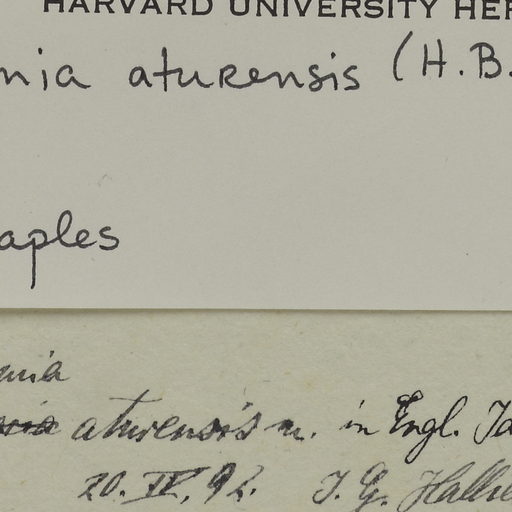 HARVARD UNIVERSITY HER
nia aturensis (H.B.
aples
nia
aturensis n. in Engl. Ja
20. IV. 92. J. G. Hallie